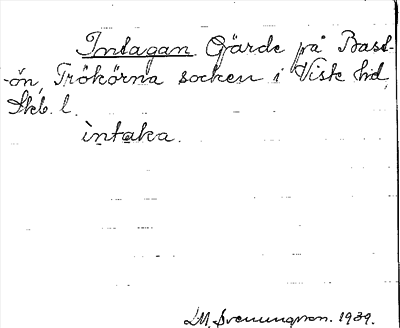 Intagan Gärde på Bast-
ön, Trökörna socken i Viste hd,
Skb. l.
ìntaka.
LM. Svenungsson. 1939.